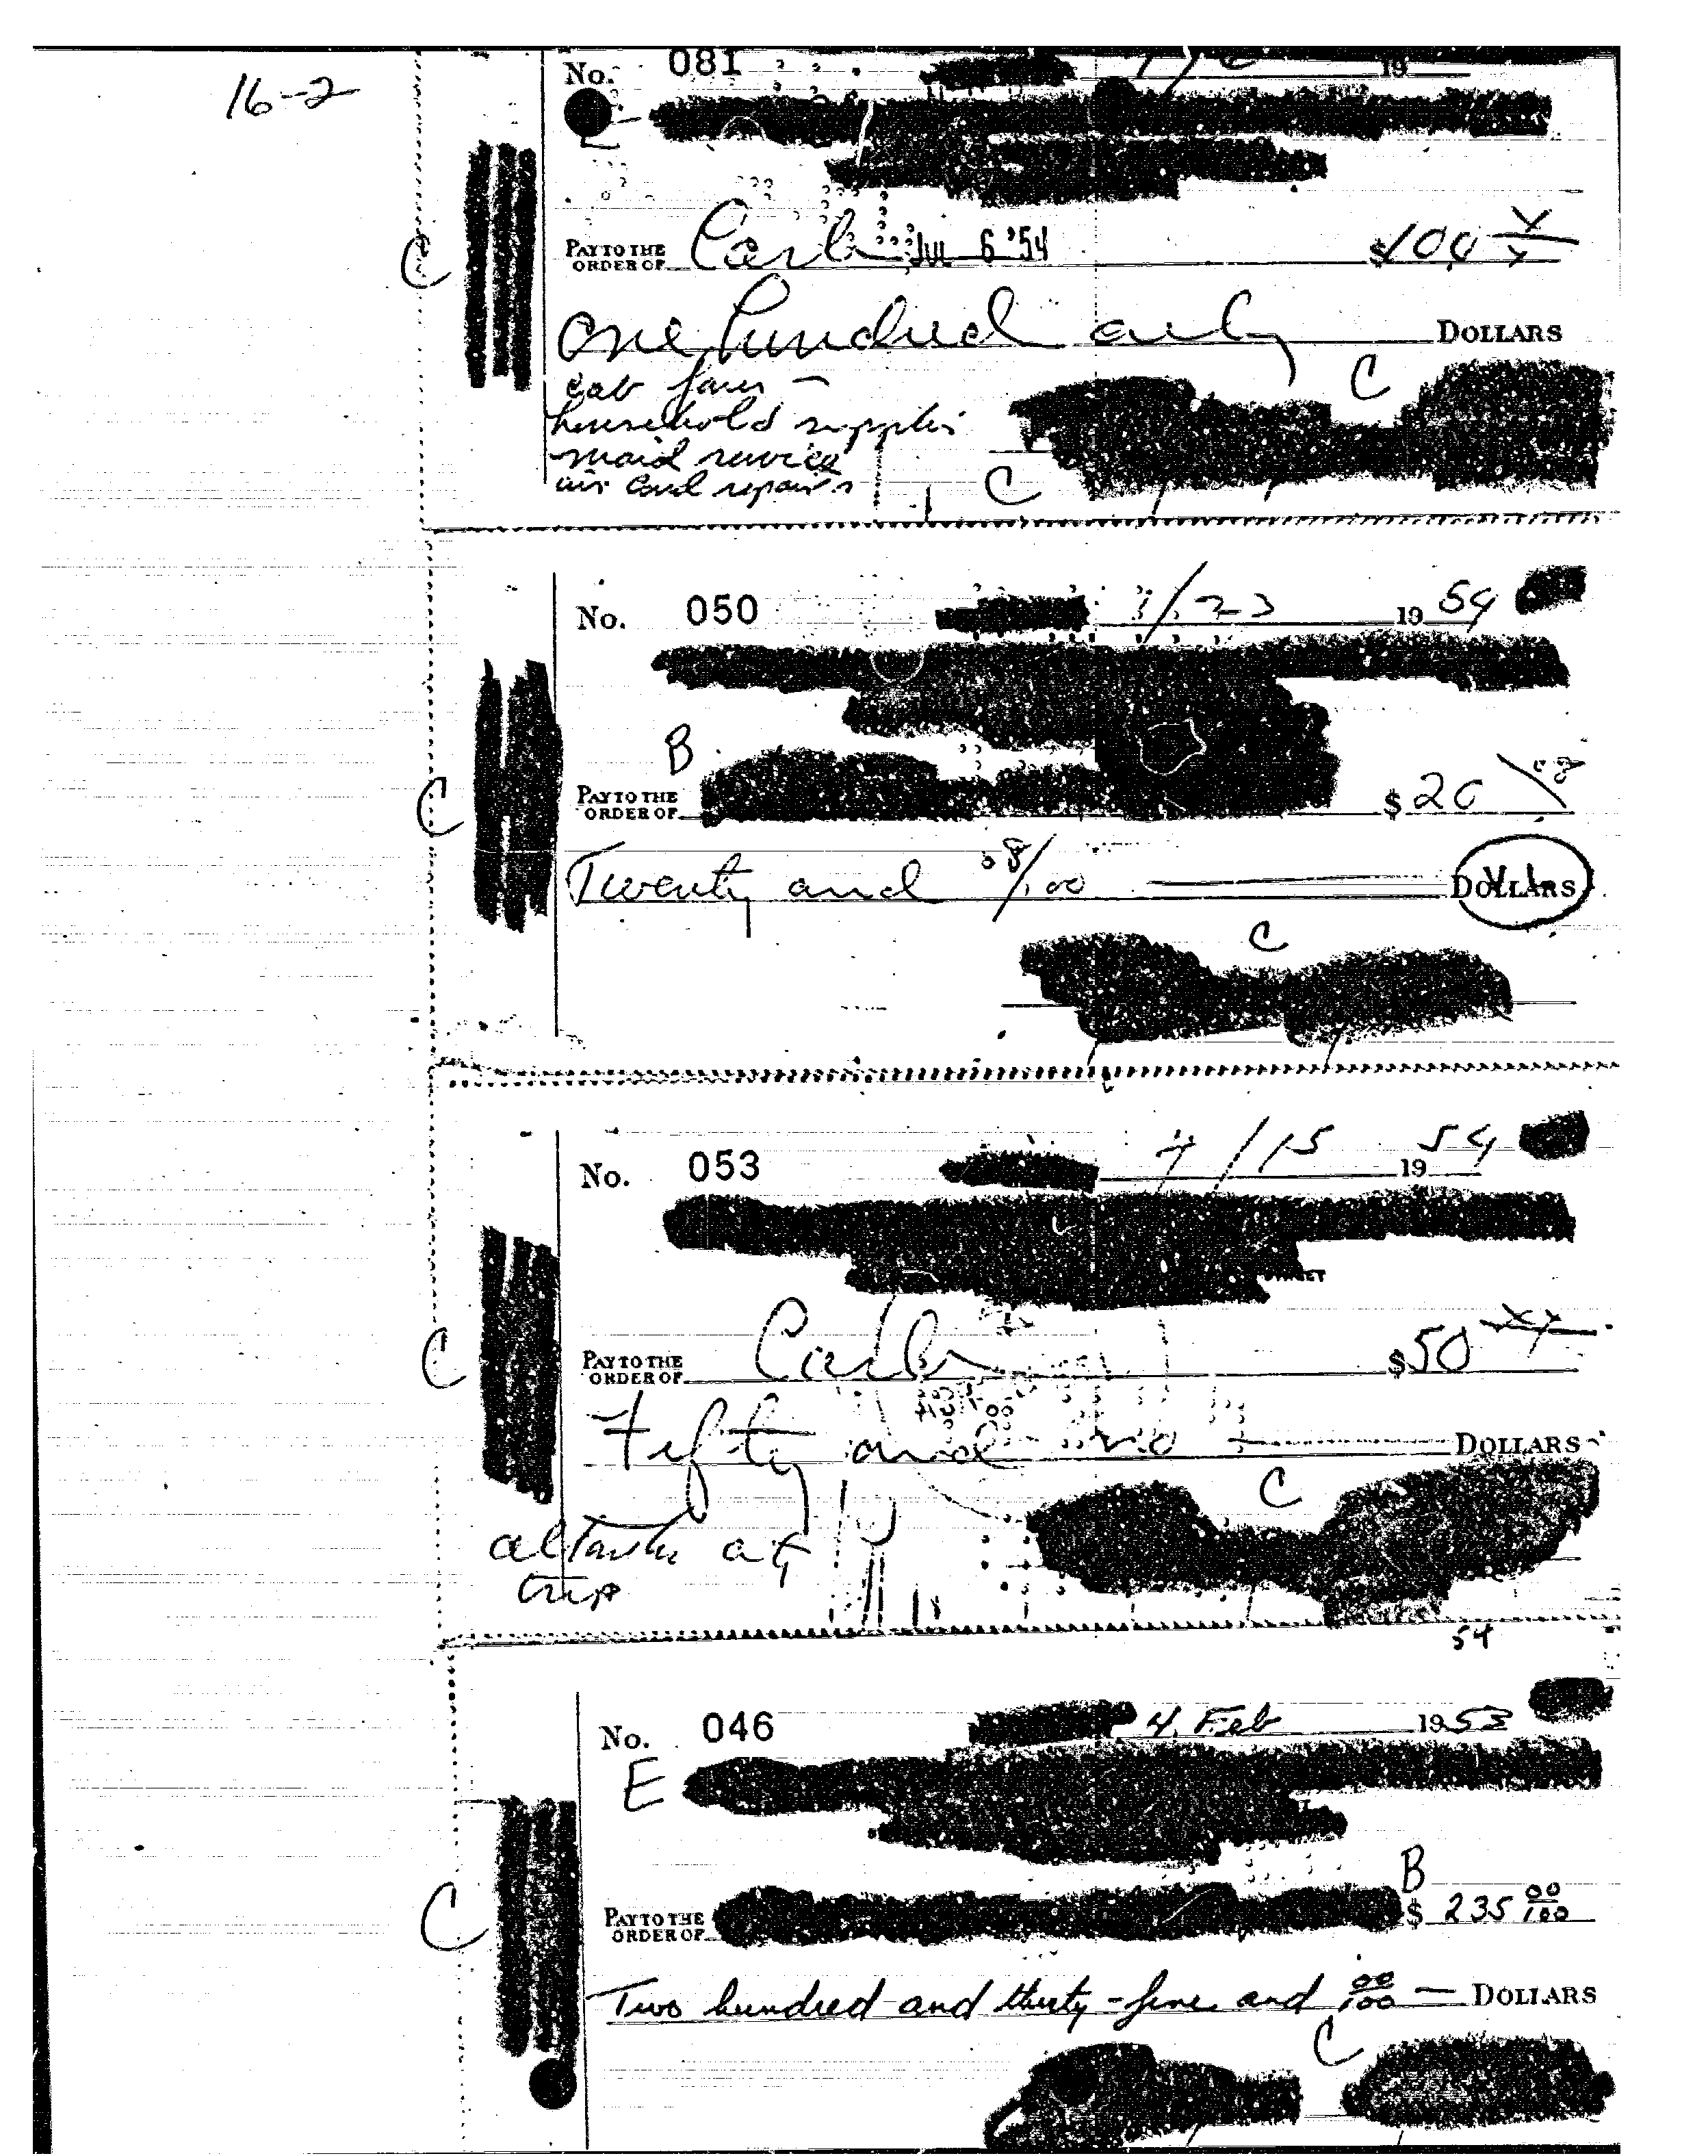 16-2
No. 081 19
C
PAY TO THE
ORDER OF Cash JUL 6 '54 $100 X/X
One hundred only DOLLARS
cab fares - C
household supplies
maid service
air cond repairs C
No. 050 /23 19 54
B
C
PAY TO THE
ORDER OF $20 08
Twenty and 08/100 DOLLARS
C
No. 053 /15 19 54
STREET
C
PAY TO THE
ORDER OF Cash $50 XX
Fifty and no DOLLARS
C
atlantic city
trip
54
No. 046 4 Feb 1953
E
B
C
PAY TO THE
ORDER OF $ 235 00/100
Two hundred and thirty-five and 00/100 — DOLLARS
C